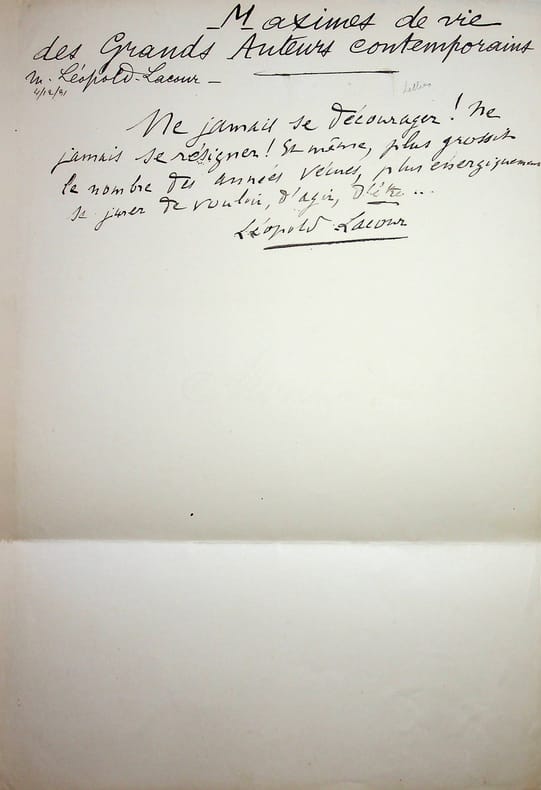 Maximes de vie
des Grands Auteurs contemporains
M. Léopold-Lacour -
4/12/31
Lettres
Ne jamais se décourager! Ne
jamais se résigner! Et même, plus grossit
le nombre des années vécues, plus énergiquement
se jurer de vouloir, d'agir, d'être...
Léopold Lacour